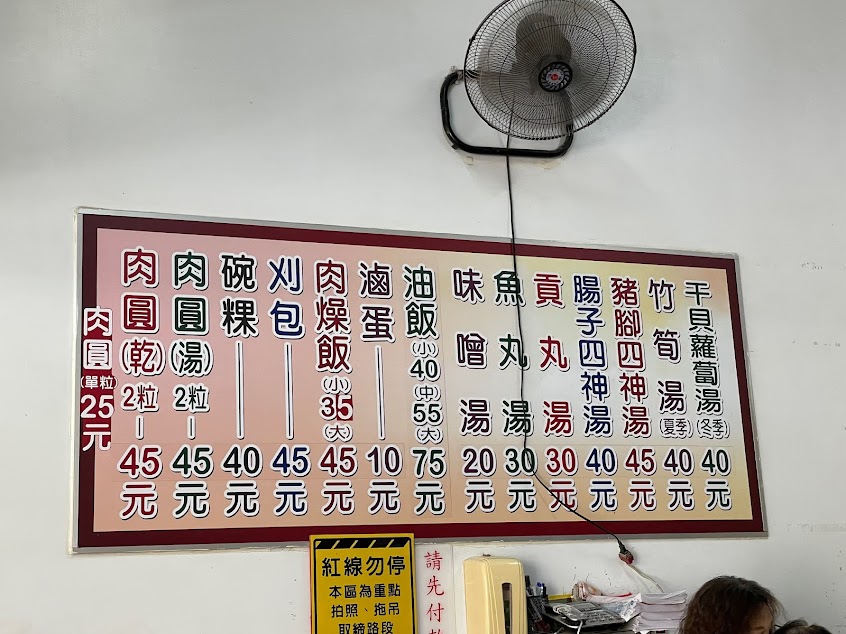 肉圓(單粒)25元
肉圓(乾)2粒45元
肉圓(湯)2粒45元
碗粿40元
刈包45元
肉燥飯(小)35(大)45元
滷蛋10元
油飯(小)40(中)55(大)75元
味噌湯20元
魚丸湯30元
貢丸湯30元
腸子四神湯40元
豬腳四神湯45元
竹筍湯(夏季)40元
干貝蘿蔔湯(冬季)40元
紅線勿停
本區為重點
拍照、拖吊
取締路段
請先付